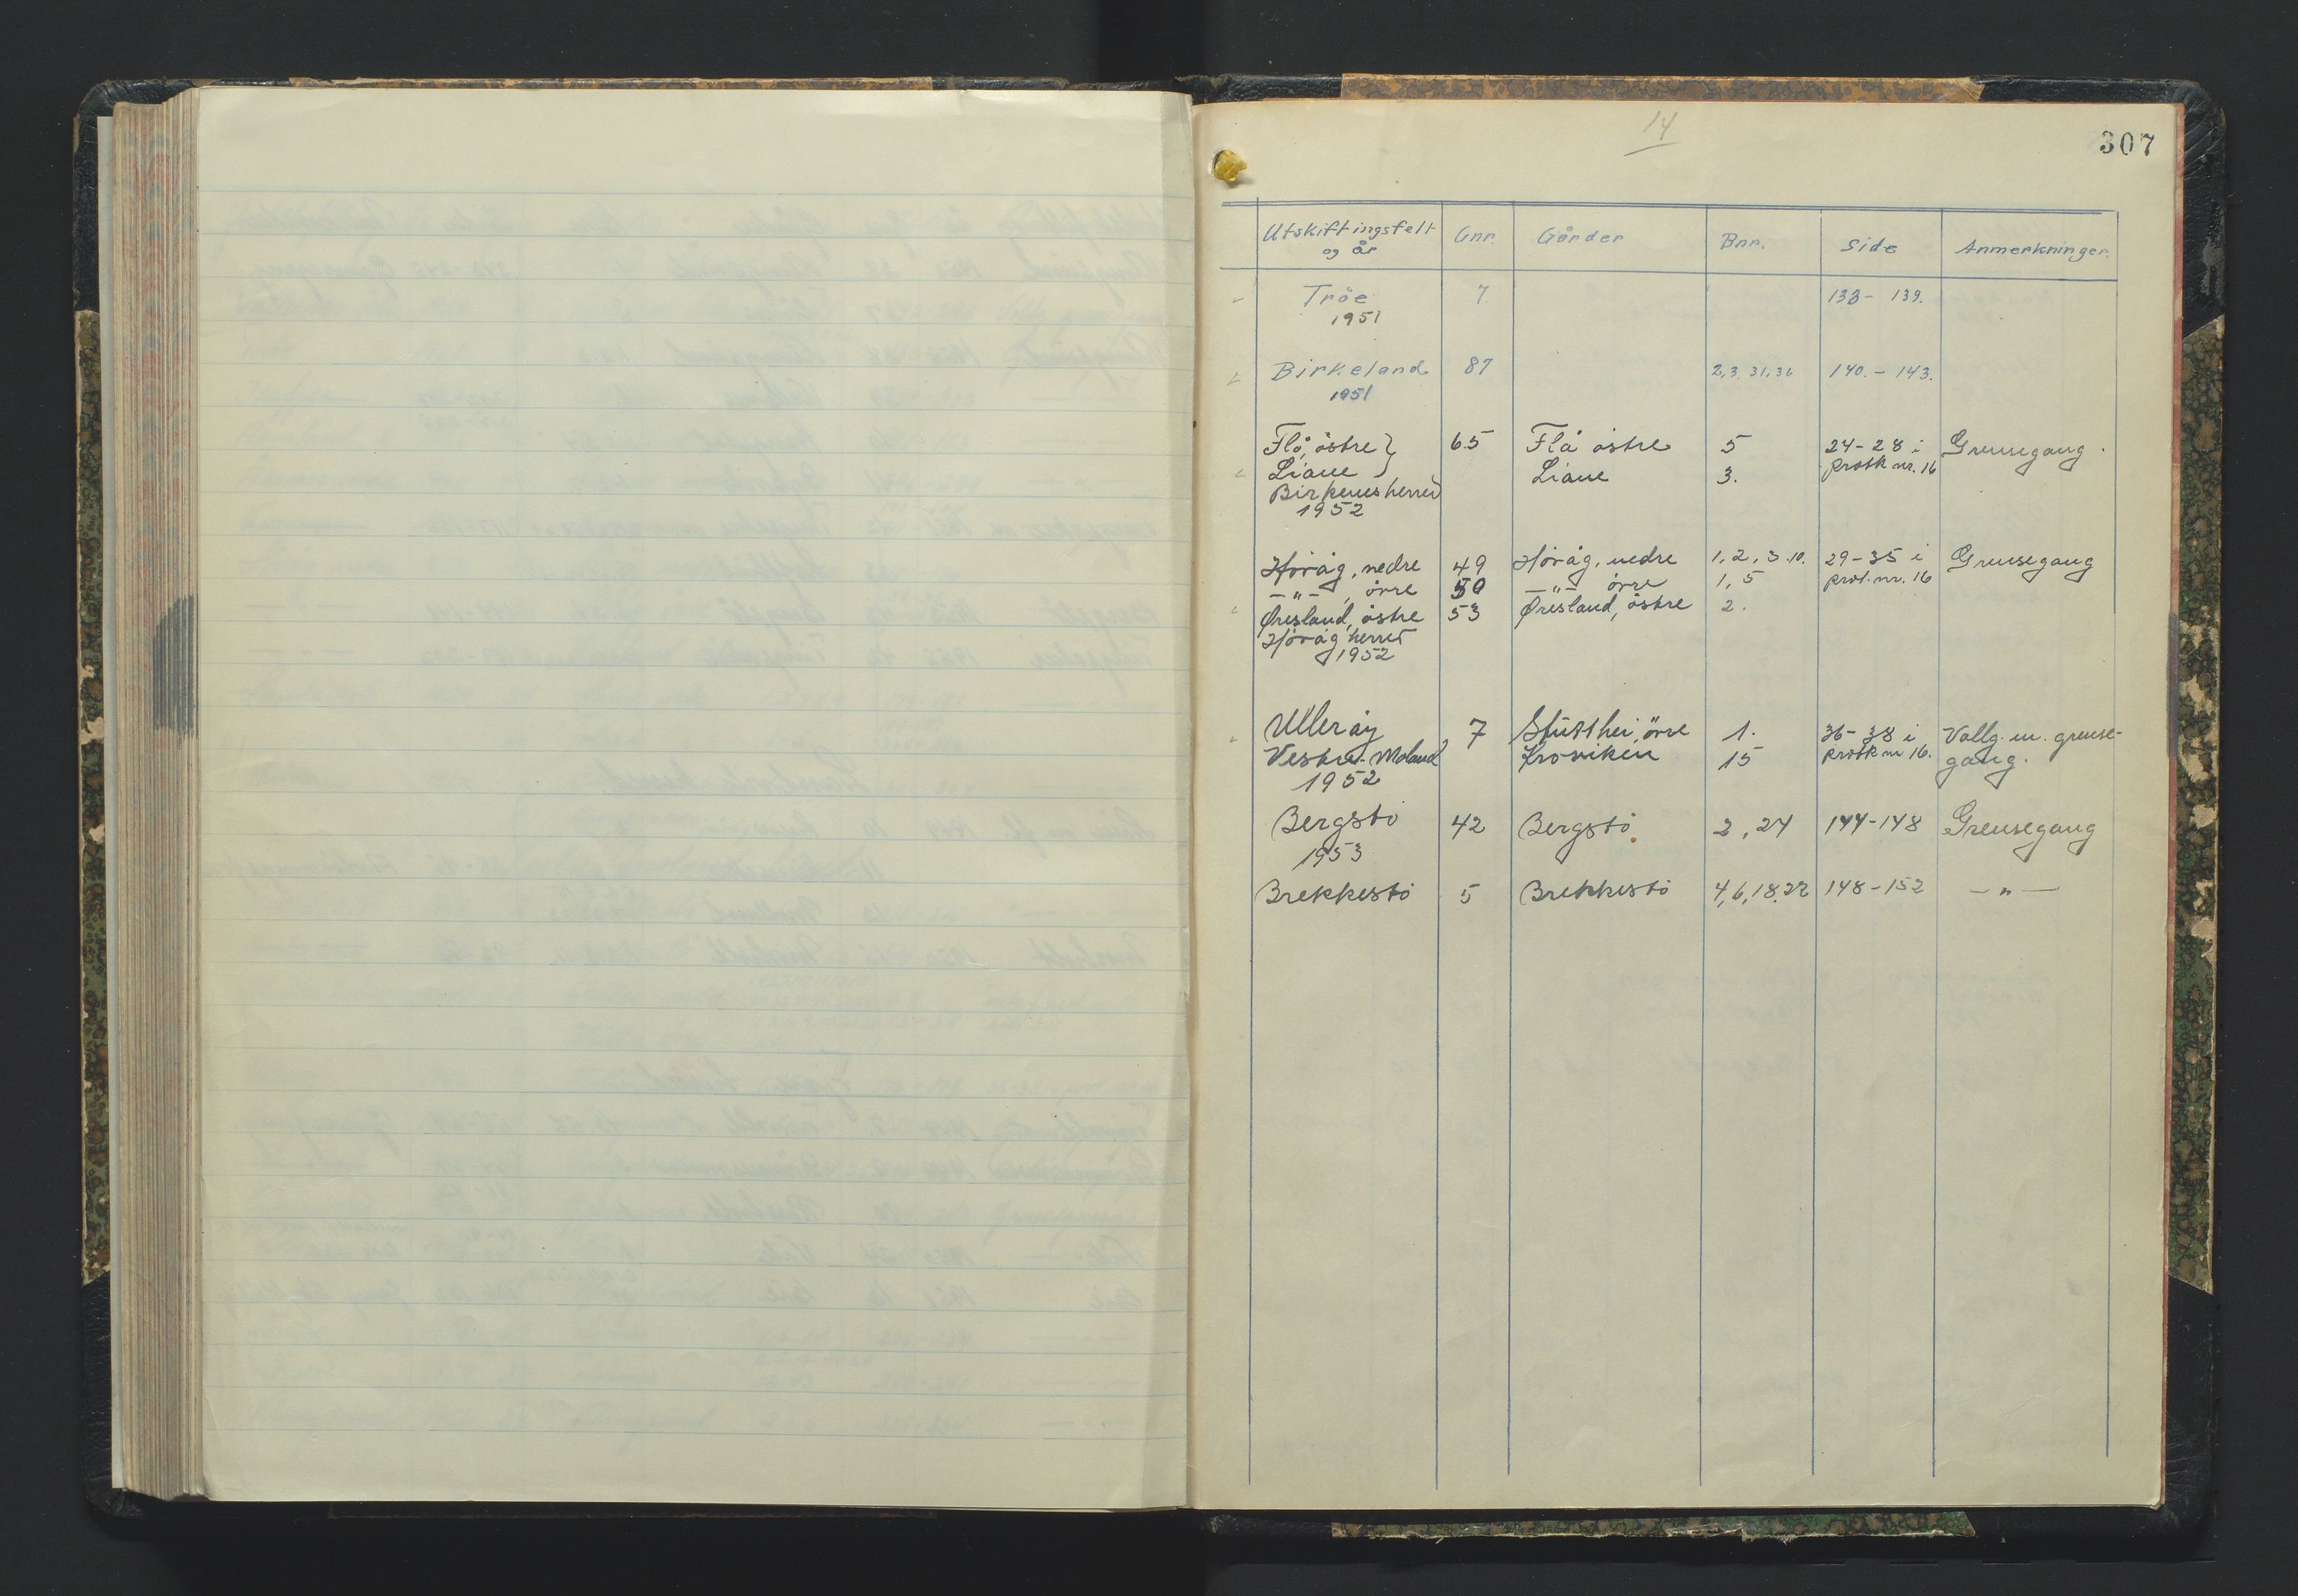 14
307
Utskiftingsfelt og år Gnr. Gårder Bnr. Side Anmerkninger.
Tröe 7. 133 - 139.
1951
Birkeland 87 2,3, 31,36 140. - 143.
1951
Flå, östre } 65 Flå östre 5 24-28 i Grensegang.
Liane Liane 3. protk nr. 16
Birkenes herred
1952
Höväg, nedre 49 Höväg, nedre 1, 2, 3. 10. 29-35 i Grensegang
-"- , övre 50 -"- övre 1, 5 prot. nr. 16
Øresland, östre 53 Øresland, östre 2.
Höväg herred
1952
Ulleröy 7 övre 1. 36-38 i Vollg. m. grense-
Vestre-Moland Kroviken 15 protk nr 16. gang.
1952
Bergstö 42 Bergstö 2, 24 144-148 Grensegang
1953
Brekkestö 5 Brekkestö 4, 6, 18, 22 148-152 -"-